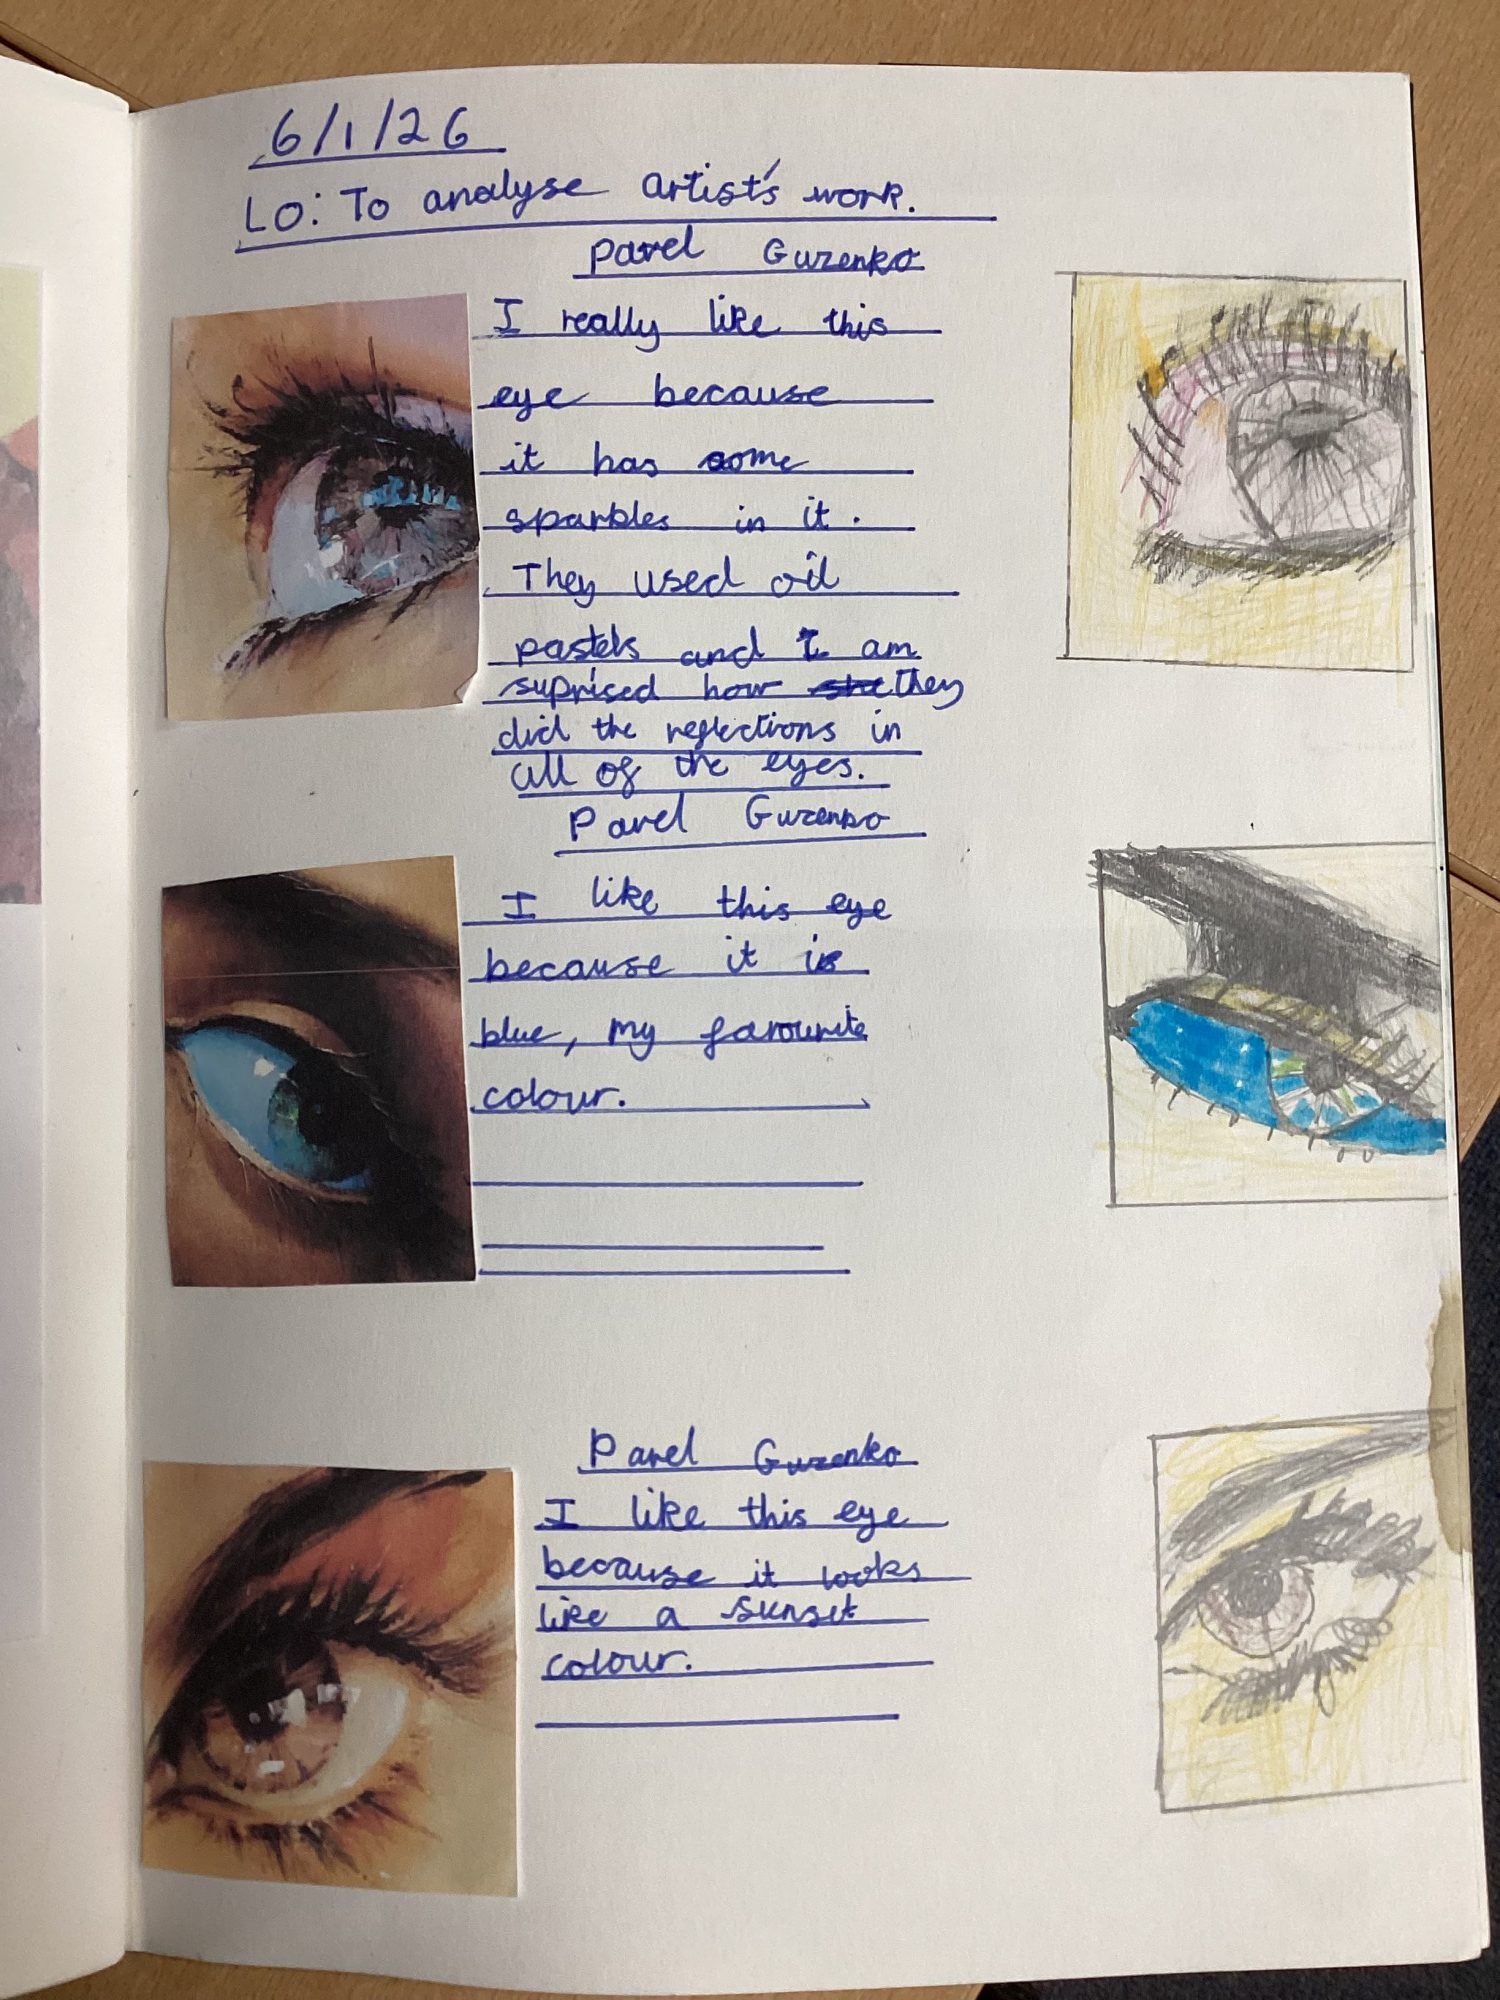 6/1/26
LO: To analyse artist's work.
Pavel Guzenko
I really like this
eye because
it has some
sparkles in it.
They used oil
pastels and I am
suprised how they
did the reflections in
all of the eyes.
Pavel Guzenko
I like this eye
because it is
blue, my favourite
colour.
Pavel Guzenko
I like this eye
because it looks
like a sunset
colour.